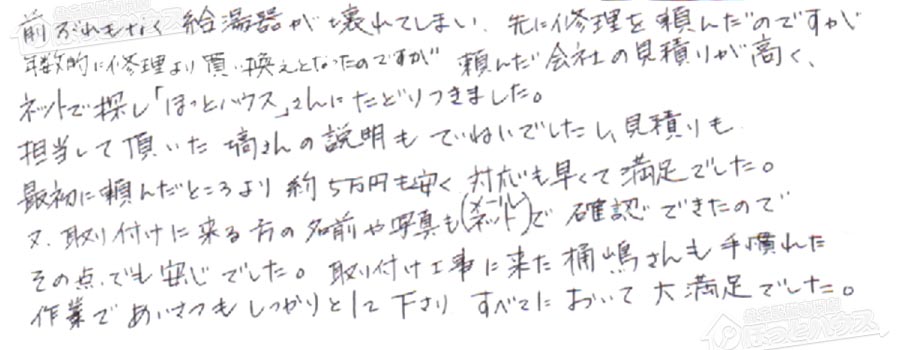 前ぶれもなく給湯器が壊れてしまい、先に修理を頼んだのですが
年数的に修理より買い換えとなったのですが 頼んだ会社の見積りが高く、
ネットで探し「ほっとハウス」さんにたどりつきました。
担当して頂いた さんの説明もていねいでしたし、見積りも
最初に頼んだところより約5万円も安く対応も早くて満足でした。
又、取り付けに来る方の名前や写真も(メール ネット)で確認できたので
その点でも安じでした。取り付け工事に来た桶嶋さんも手慣れた
作業であいさつもしっかりとして下さり すべてにおいて大満足でした。
ほっとハウス